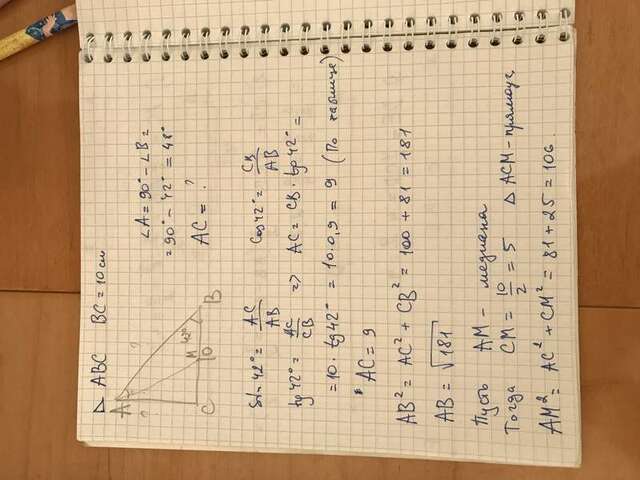 △ ABC BC = 10 см
∠A = 90° - ∠B =
= 90° - 42° = 48°
AC = ?
A
?
?
M
42°
B
C
10
Sin 42° = AC/AB
Cos 42° = CB/AB
tg 42° = AC/CB => AC = CB · tg 42° =
= 10 · tg 42° = 10 · 0,9 = 9 (По таблице)
AC = 9
AB² = AC² + CB² = 100 + 81 = 181
AB = √181
Пусть AM - медиана
Тогда CM = 10/2 = 5 △ ACM - прямоуг
AM² = AC² + CM² = 81 + 25 = 106